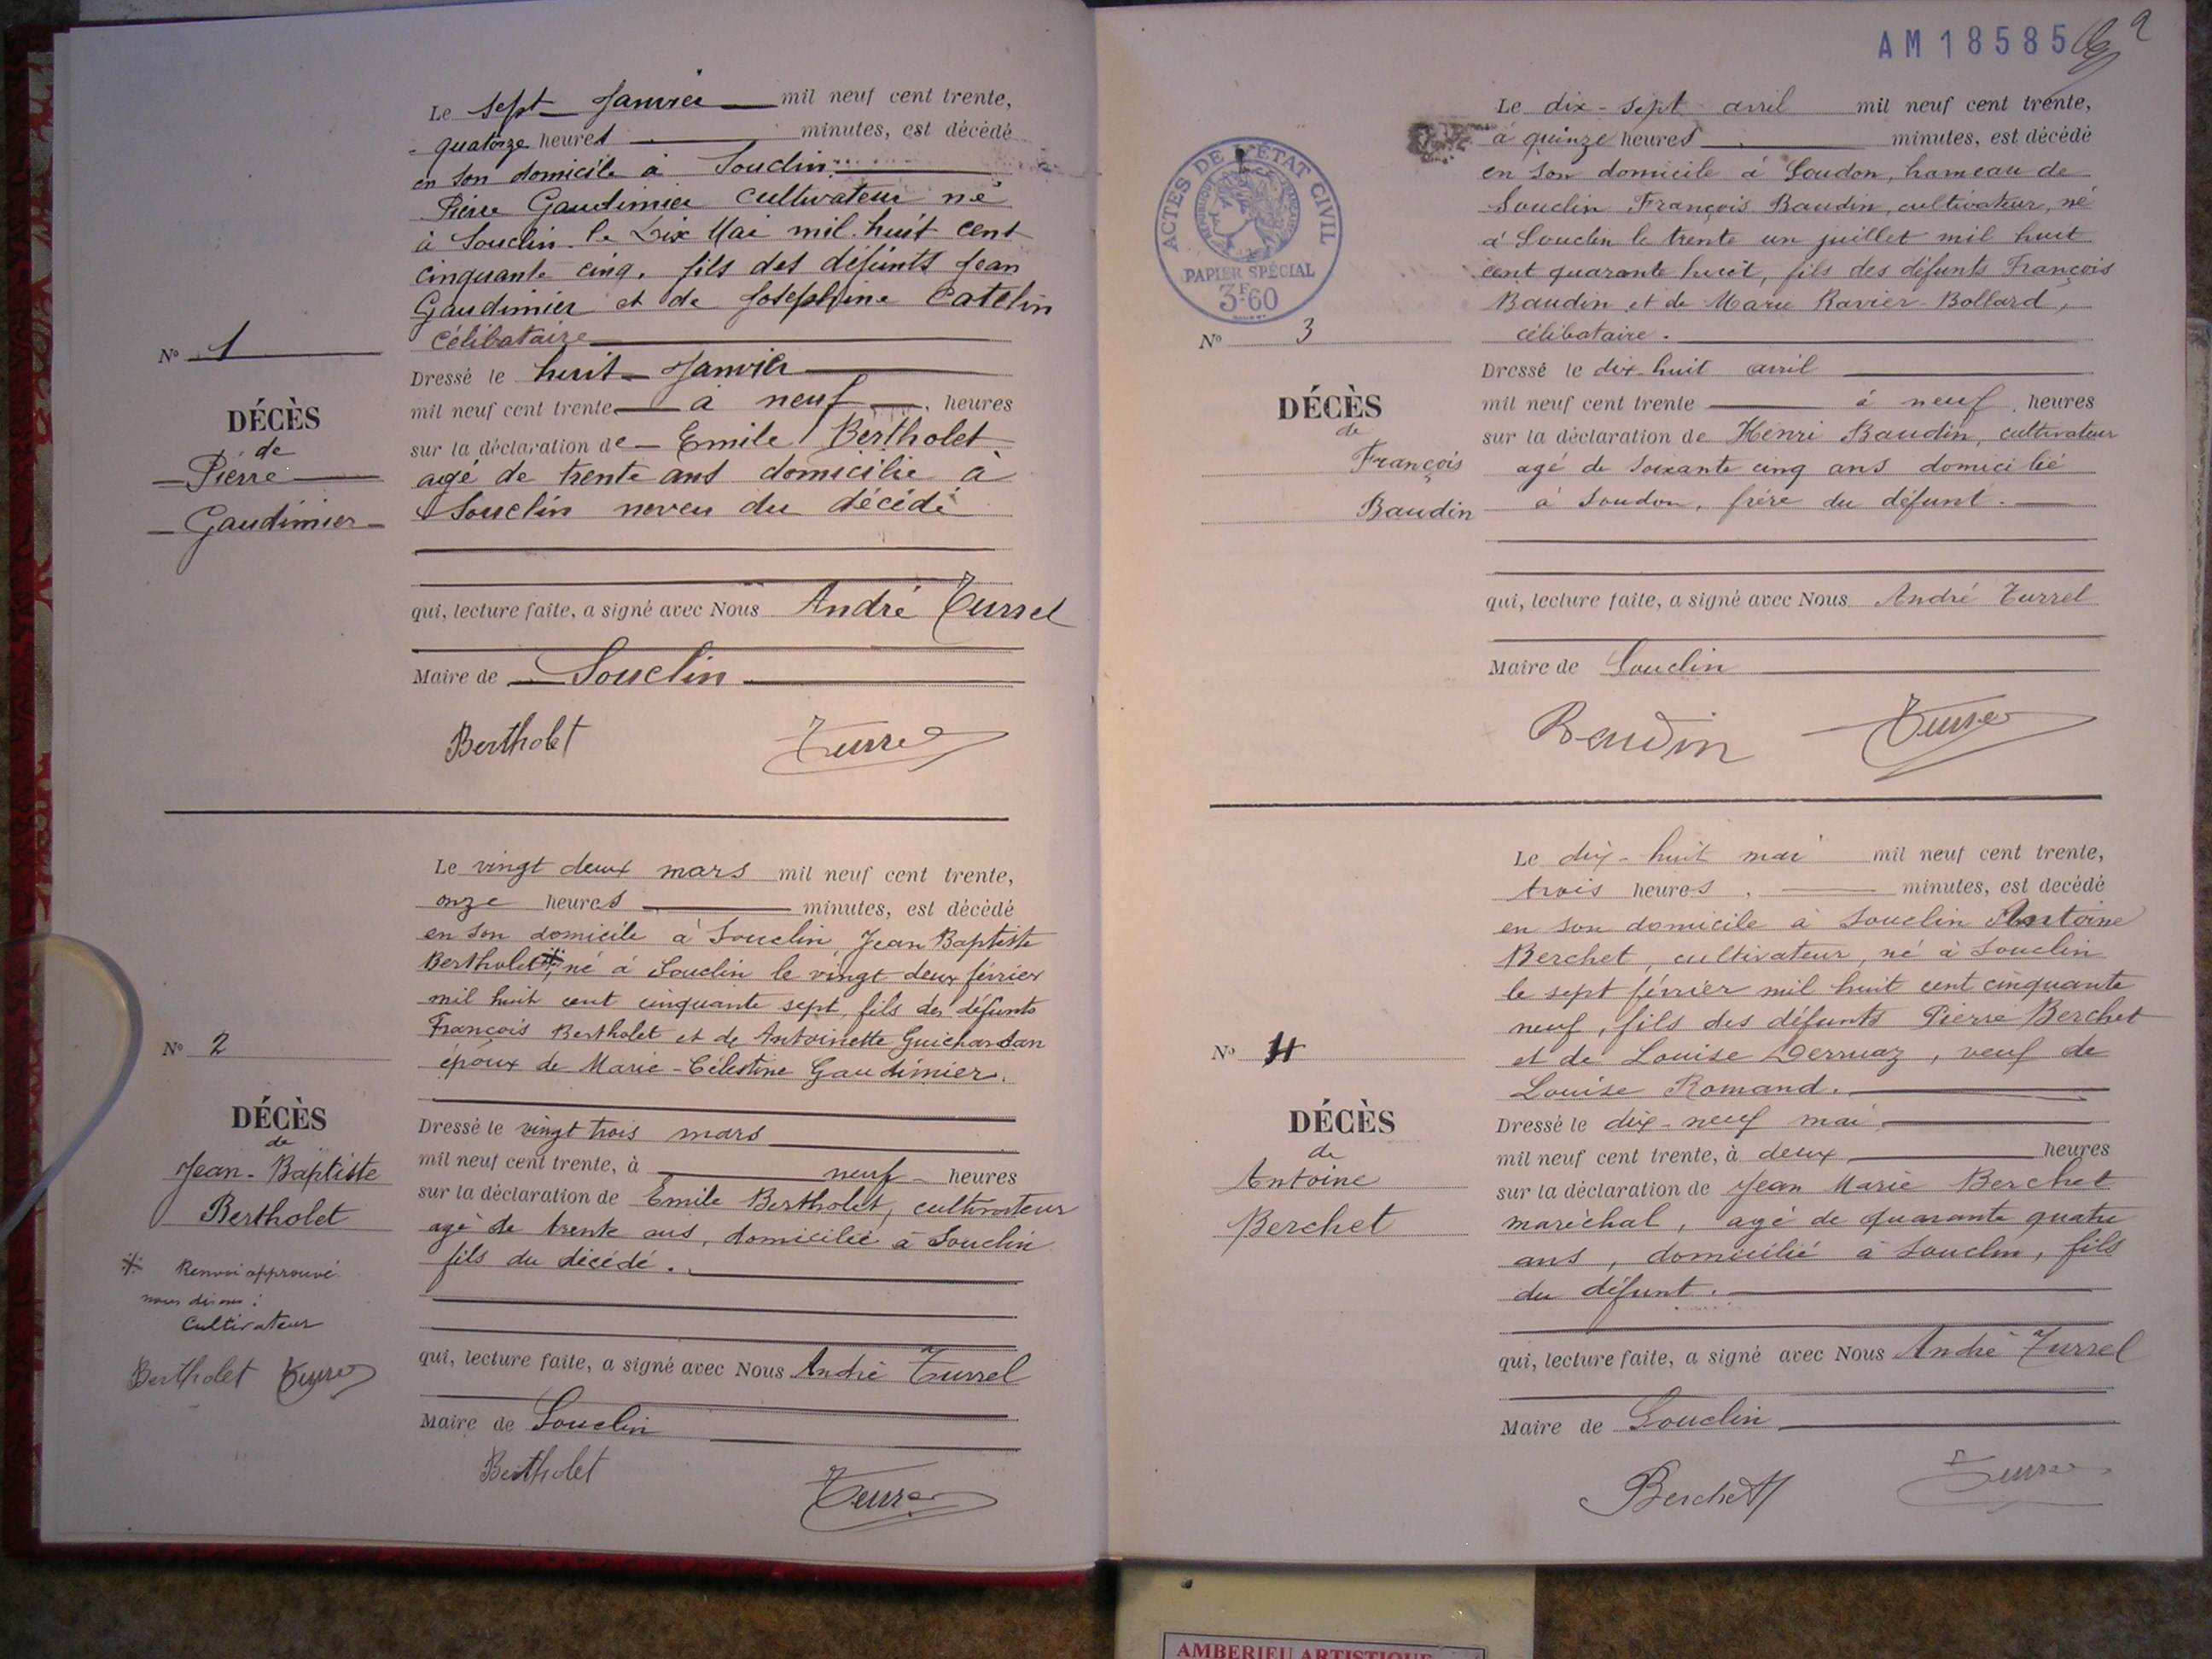 Le sept Janvier mil neuf cent trente,
quatorze heures minutes, est décédé
en son domicile à Souclin
Pierre Gaudimier cultivateur né
à Souclin le Dix Mai mil huit cent
cinquante cinq, fils des défunts Jean
Gaudimier et de Joséphine Catelin
célibataire
N° 1
Dressé le huit Janvier
mil neuf cent trente à neuf heures
sur la déclaration de Emile Bertholet
agé de trente ans domicilié à
Souclin neveu du décédé
DÉCÈS
de
Pierre
Gaudimier
qui, lecture faite, a signé avec Nous André Turrel
Maire de Souclin
Bertholet Turrel
Le vingt deux mars mil neuf cent trente,
onze heures minutes, est décédé
en son domicile à Souclin Jean Baptiste
Bertholet * né à Souclin le vingt deux février
mil huit cent cinquante sept, fils des défunts
François Bertholet et de Antoinette Guichardan
époux de Marie-Célestine Gaudimier.
N° 2
DÉCÈS
de
Jean-Baptiste
Bertholet
Dressé le vingt trois mars
mil neuf cent trente, à neuf heures
sur la déclaration de Emile Bertholet, cultivateur
agé de trente ans, domicilié à Souclin
fils du décédé.
* Renvoi approuvé
nous disons :
Cultivateur
Bertholet Turrel
qui, lecture faite, a signé avec Nous André Turrel
Maire de Souclin
Bertholet Turrel
AM 18585
2
ACTES DE L'ÉTAT CIVIL
PAPIER SPÉCIAL
3F.60
Le dix-sept avril mil neuf cent trente,
à quinze heures minutes, est décédé
en son domicile à Soudon, hameau de
Souclin François Baudin, cultivateur, né
à Souclin le trente un juillet mil huit
cent quarante huit, fils des défunts François
Baudin et de Marie Ravier-Bollard,
célibataire.
N° 3
DÉCÈS
de
François
Baudin
Dressé le dix-huit avril
mil neuf cent trente à neuf heures
sur la déclaration de Henri Baudin, cultivateur
agé de soixante cinq ans domicilié
à Soudon, frère du défunt.
qui, lecture faite, a signé avec Nous André Turrel
Maire de Souclin
Baudin Turrel
Le dix-huit mai mil neuf cent trente,
trois heures minutes, est décédé
en son domicile à Souclin Antoine
Berchet, cultivateur, né à Souclin
le sept février mil huit cent cinquante
neuf, fils des défunts Pierre Berchet
et de Louise Dernuaz, veuf de
Louise Romand.
N° 4
DÉCÈS
de
Antoine
Berchet
Dressé le dix-neuf mai
mil neuf cent trente, à deux heures
sur la déclaration de Jean Marie Berchet
maréchal, agé de quarante quatre
ans, domicilié à Souclin, fils
du défunt.
qui, lecture faite, a signé avec Nous André Turrel
Maire de Souclin
Berchet Turrel
AMBERIEU ARTISTIQUE